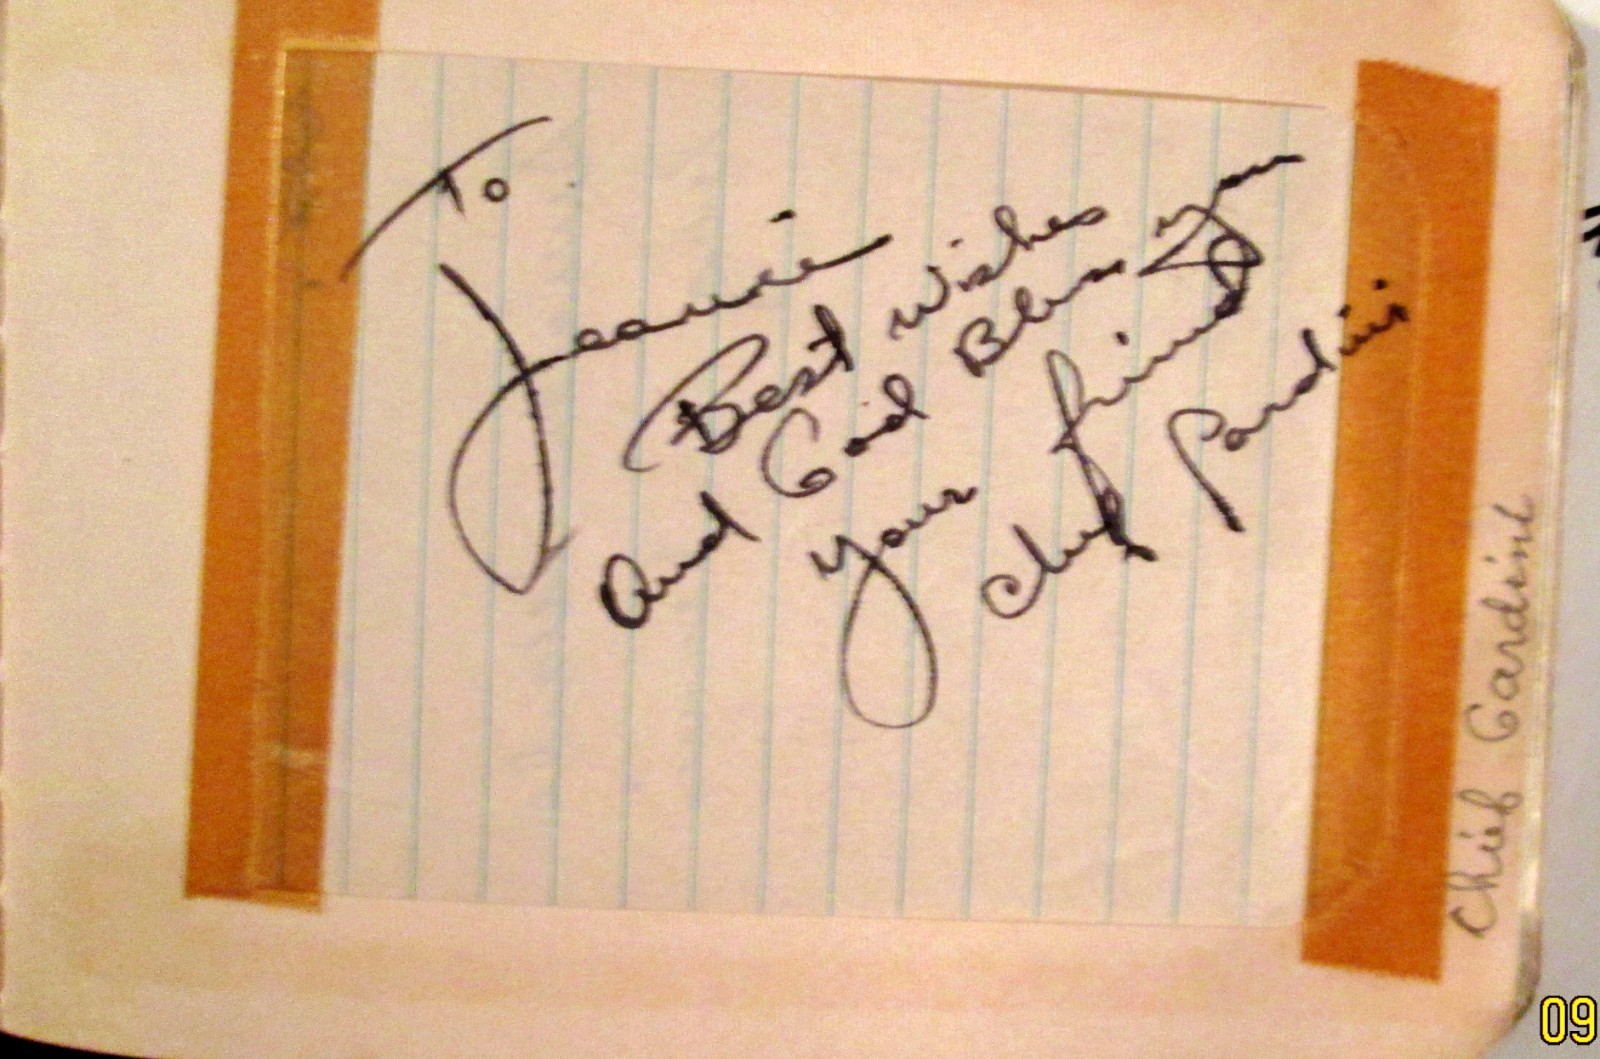 To
Jeannie
Best Wishes
And God Bless You
Your friend
Chief Pardini
Chief Gardini
09